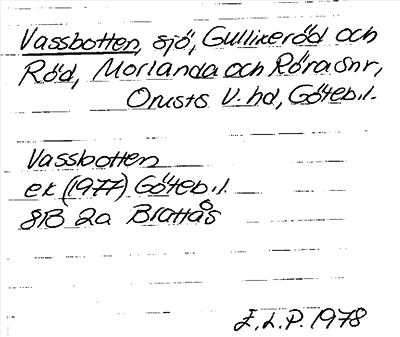 Vassbotten, sjö, Gullikeröd och
Röd, Morlanda och Röra snr,
Orusts V. hd, Göteb.l.
Vassbotten
ek (1977) Göteb.l.
81B 2a Brattås
E.L.P. 1978